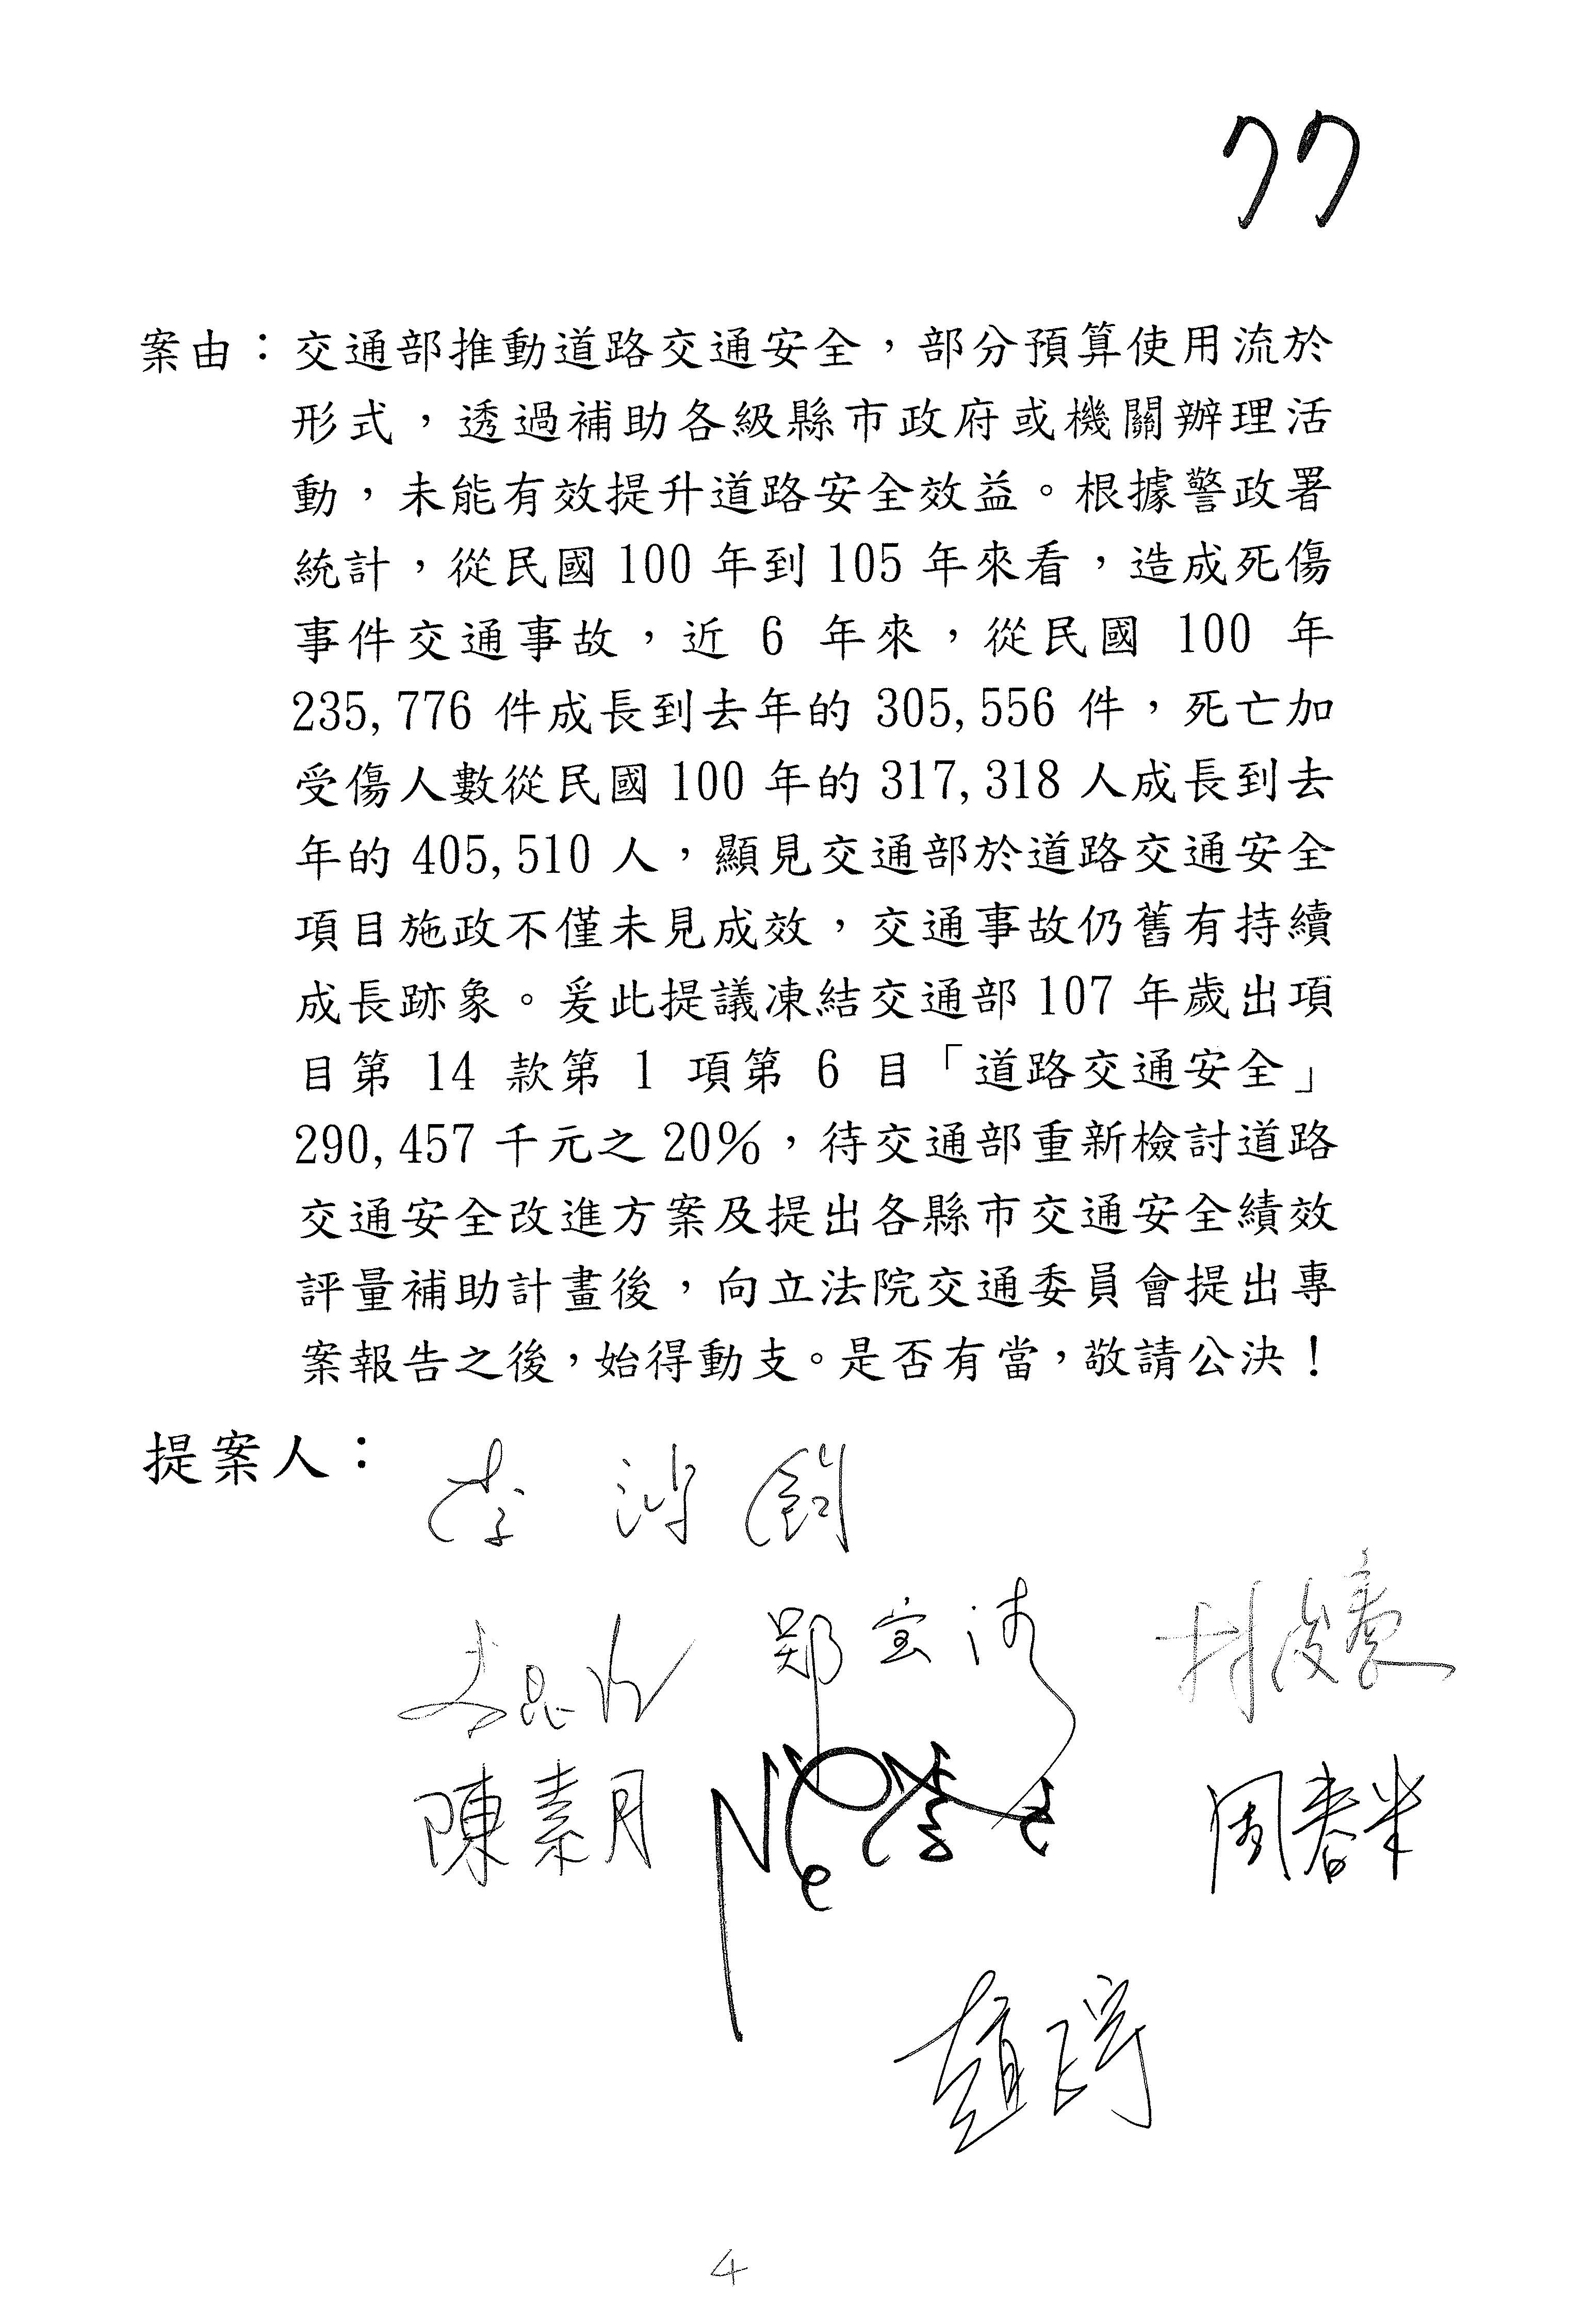 77
案由：交通部推動道路交通安全，部分預算使用流於
形式，透過補助各級縣市政府或機關辦理活
動，未能有效提升道路安全效益。根據警政署
統計，從民國 100 年到 105 年來看，造成死傷
事件交通事故，近 6 年來，從民國 100 年
235,776 件成長到去年的 305,556 件，死亡加
受傷人數從民國 100 年的 317,318 人成長到去
年的 405,510 人，顯見交通部於道路交通安全
項目施政不僅未見成效，交通事故仍舊有持續
成長跡象。爰此提議凍結交通部 107 年歲出項
目第 14 款第 1 項第 6 目「道路交通安全」
290,457 千元之 20%，待交通部重新檢討道路
交通安全改進方案及提出各縣市交通安全績效
評量補助計畫後，向立法院交通委員會提出專
案報告之後，始得動支。是否有當，敬請公決！
提案人：
李鴻鈞
鄭宝清 林俊憲
陳素月 周春米
4